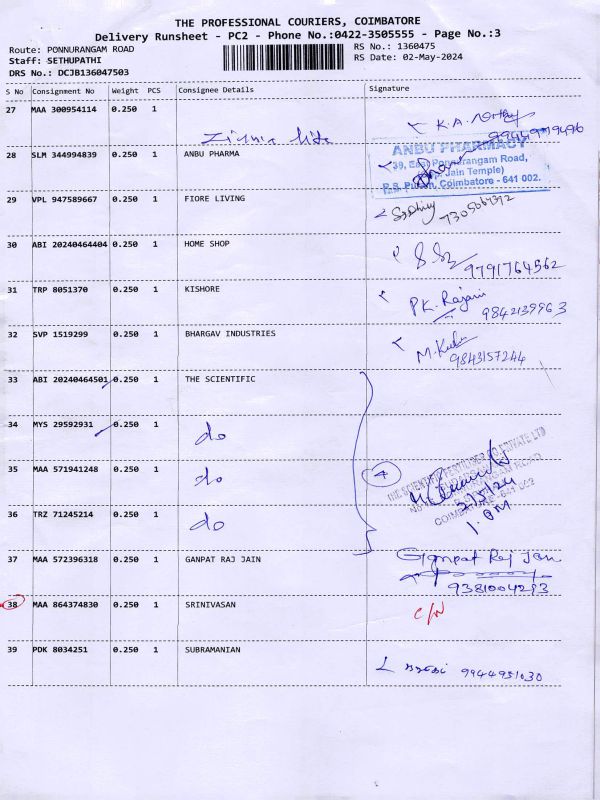 THE PROFESSIONAL COURIERS, COIMBATORE
Delivery Runsheet - PC2 - Phone No.:0422-3505555 - Page No.:3
Route: PONNURANGAM ROAD
RS No.: 1360475
Staff: SETHUPATHI
RS Date: 02-May-2024
DRS No.: DCJB136047503
S No Consignment No Weight PCS Consignee Details Signature
27 MAA 300954114 0.250 1
K.A.
28 SLM 344994839 0.250 1 ANBU PHARMA
ANBU PHARMACY
39, East Ponnurangam Road,
(Opp. Jain Temple)
R.S. Puram, Coimbatore - 641 002.
29 VPL 947589667 0.250 1 FIORE LIVING
30 ABI 20240464404 0.250 1 HOME SHOP
9791764562
31 TRP 8051370 0.250 1 KISHORE
PK. Rajani
9842139963
32 SVP 1519299 0.250 1 BHARGAV INDUSTRIES
9843157244
33 ABI 20240464501 0.250 1 THE SCIENTIFIC
34 MYS 29592931 0.250 1 do
35 MAA 571941248 0.250 1 do
4
THE SCIENTIFIC FERTILISER CO. PRIVATE LTD
COIMBATORE-641 002
2/5/24
36 TRZ 71245214 0.250 1 do
37 MAA 572396318 0.250 1 GANPAT RAJ JAIN
Ganpat Raj Jain
9381004293
38 MAA 864374830 0.250 1 SRINIVASAN C/N
39 PDK 8034251 0.250 1 SUBRAMANIAN
9944951030